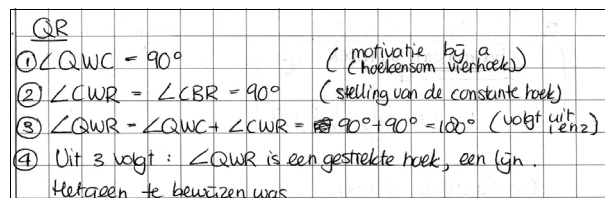 QR
① ∠QWC = 90° (motivatie bij a (hoekensom vierhoek))
② ∠CWR = ∠CBR = 90° (stelling van de constante hoek)
③ ∠QWR = ∠QWC + ∠CWR = 90° + 90° = 180° (volgt uit 1 en 2)
④ Uit 3 volgt : ∠QWR is een gestrekte hoek, een lijn.
Hetgeen te bewijzen was